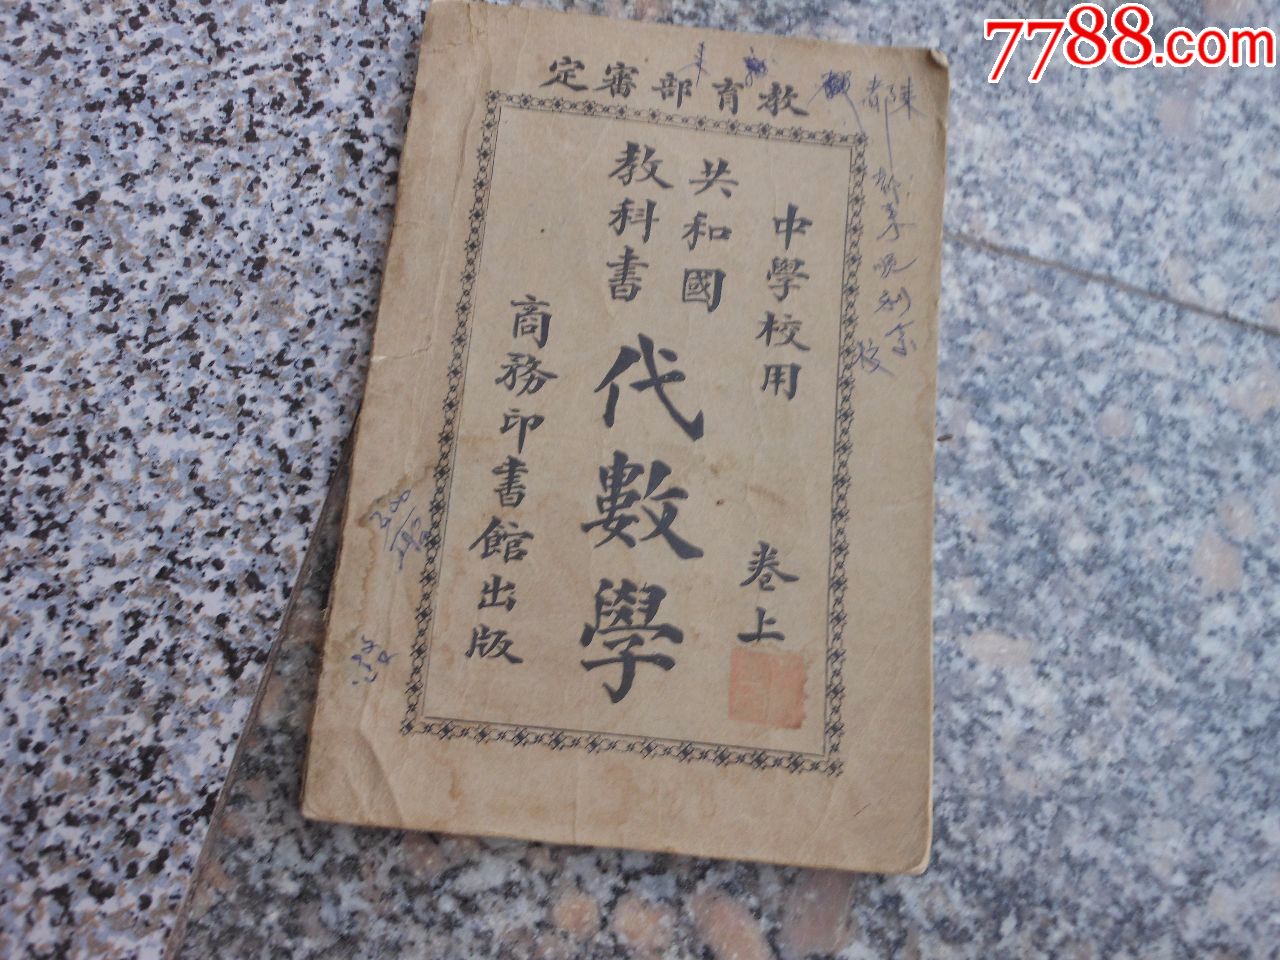 7788.com
教育部審定
中學校用
卷上
共和國
教科書
代數學
商務印書館出版